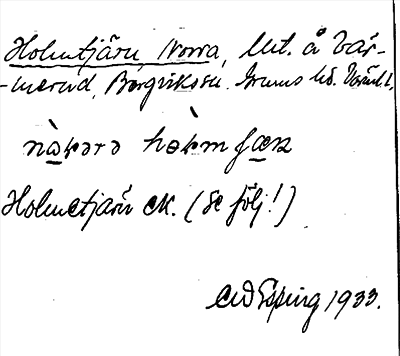 Holmtjärn Norra, lht. å Vär-
-merud, Borgvikssn. Grums hd. Värml. l.
nàkərə hòkmʃæɳ
Holmetjärn ek. (se följ!)
CWEsping 1933.